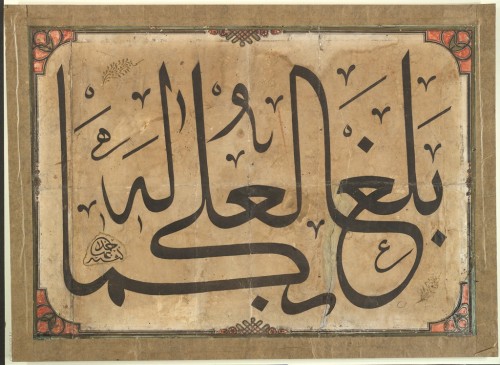 بلغ العلى بكماله